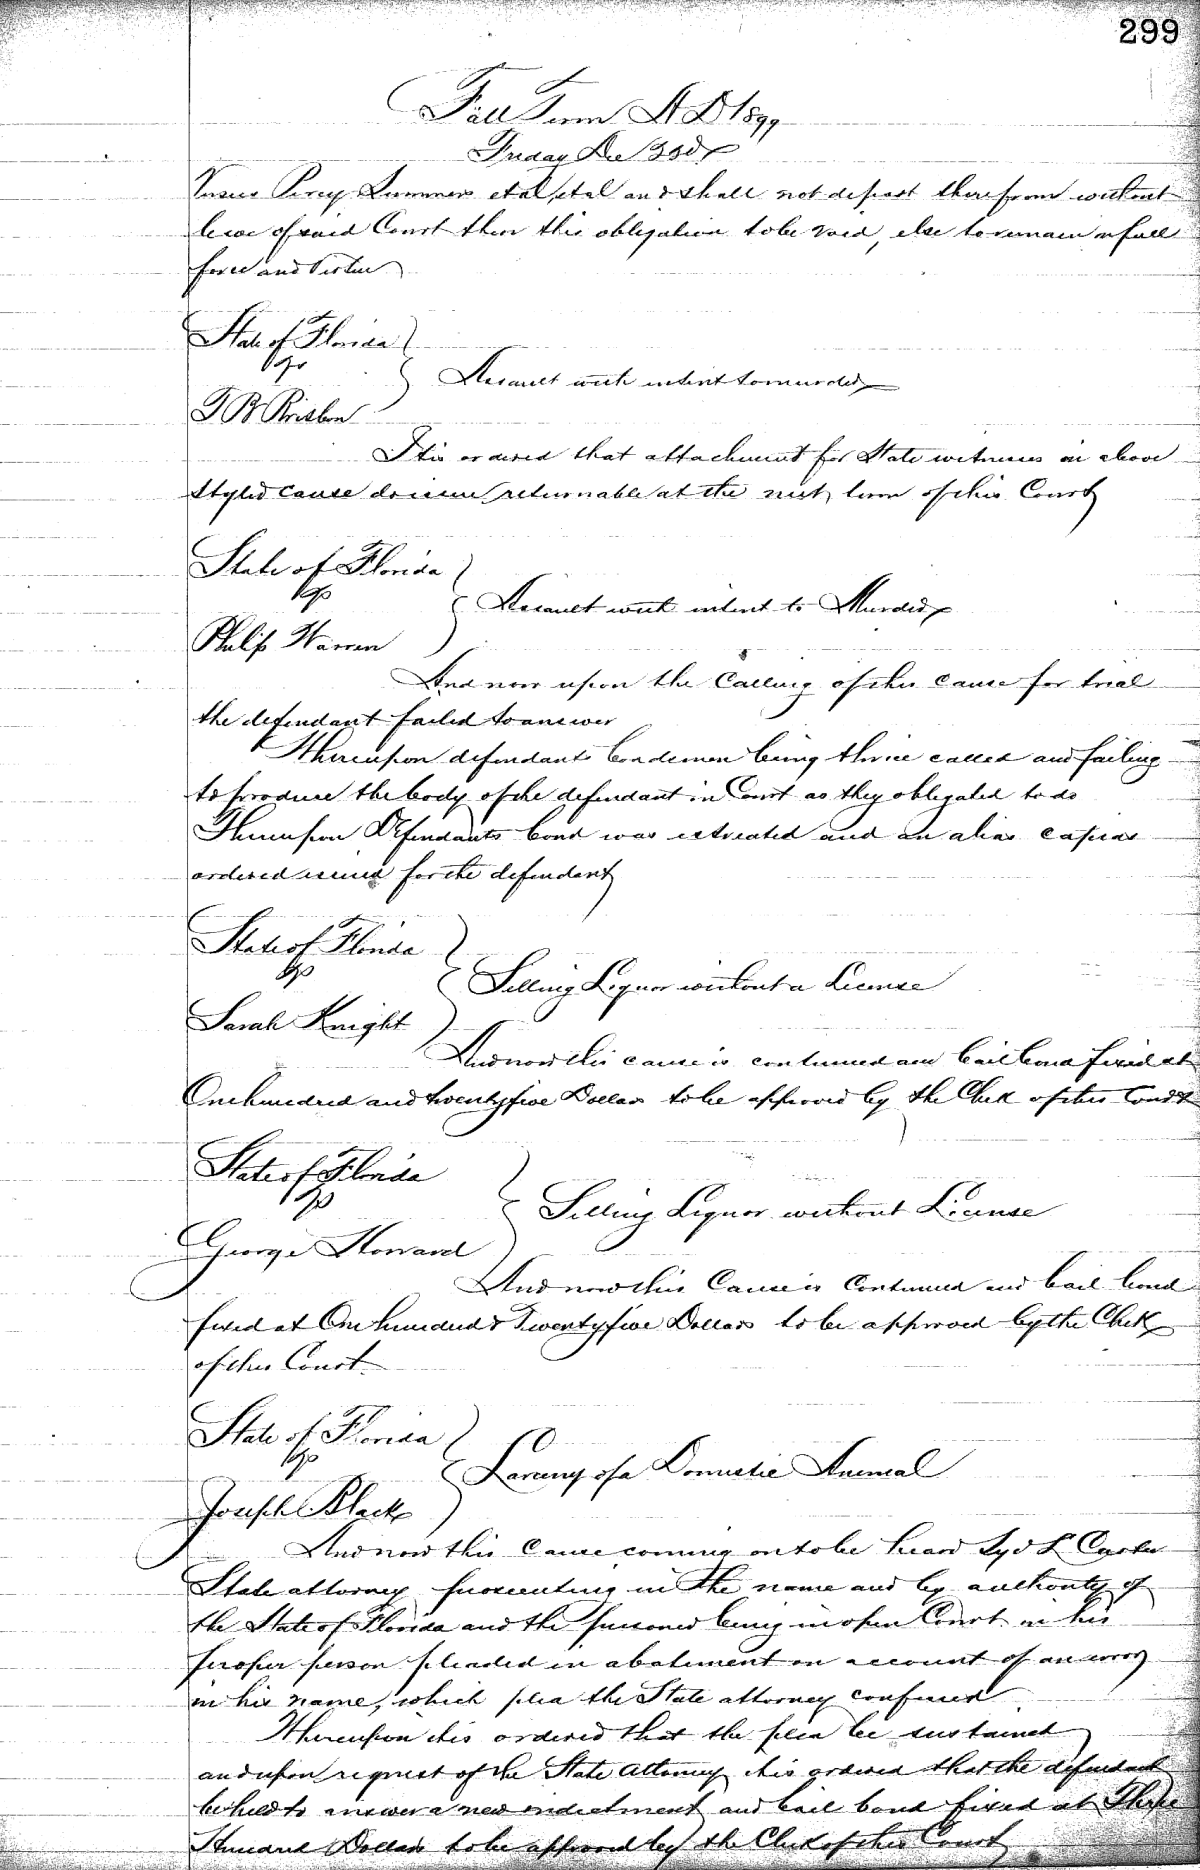 299
Fall Term A D 1897
Friday Dec 3rd
Versus Percy Summers etal, etal and shall not depart therefrom without
leave of said Court then this obligation to be void, else to remain in full
force and virtue
State of Florida
vs
Assault with intent to murder
T B Brisbon
It is ordered that attachment for State witnesses in above
styled cause do issue returnable at the next term of this Court
State of Florida
vs
Assault with intent to Murder
Philip Warren
And now upon the Calling of this cause for trial
the defendant failed to answer
Whereupon defendants bondsmen being thrice called and failing
to produce the body of the defendant in Court as they obligated to do
Thereupon Defendants bond was estreated and an alias capias
ordered issued for the defendant
State of Florida
vs
Selling Liquor without a License
Sarah Knight
And now this cause is continued and bail bond fixed at
One hundred and twenty five Dollars to be approved by the Clerk of this Court
State of Florida
vs
Selling Liquor without License
George Howard
And now this Cause is Continued and bail bond
fixed at One hundred & Twenty five Dollars to be approved by the Clerk
of this Court.
State of Florida
vs
Larceny of a Domestic Animal
Joseph Black
And now this Cause coming on to be heard Syd L Carter
State attorney prosecuting in the name and by authority of
the State of Florida and the prisoner being in open Court in his
proper person pleaded in abatement on account of an error
in his name, which plea the State attorney confessed
Whereupon it is ordered that the plea be sustained
and upon request of the State Attorney it is ordered that the defendant
be held to answer a new indictment and bail bond fixed at Three
Hundred Dollars to be approved by the Clerk of this Court